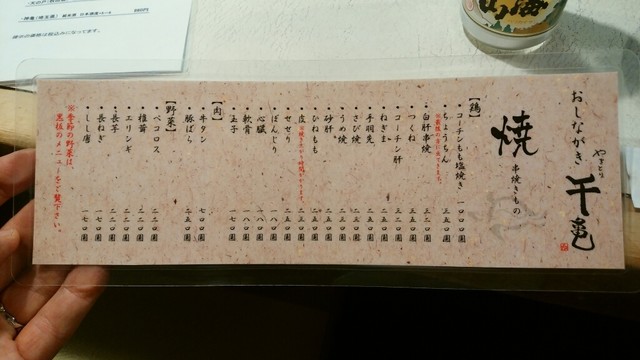 おしながき
やきとり
千亀
焼
串焼きもの
【鶏】
・コーチンもも塩焼き 一〇〇〇円
・ちょうちん 三五〇円
・白肝串焼 三二〇円
・つくね 三二〇円
・コーチン肝 三二〇円
・ねぎま 二五〇円
・手羽先 二五〇円
・さび焼 二三〇円
・うめ焼 二三〇円
・砂肝 二五〇円
・ひねもも 二五〇円
・皮
・せせり 二五〇円
・ぼんじり 一八〇円
・心臓 一八〇円
・軟骨 一八〇円
・玉子 一七〇円
【肉】
・牛タン 七〇〇円
・豚ばら 二五〇円
【野菜】
・ペコロス 二二〇円
・椎茸 二二〇円
・エリンギ 二二〇円
・長芋 二二〇円
・長ねぎ 一七〇円
・しし唐 一七〇円
※季節の野菜は、
黒板のメニューをご覧下さい。